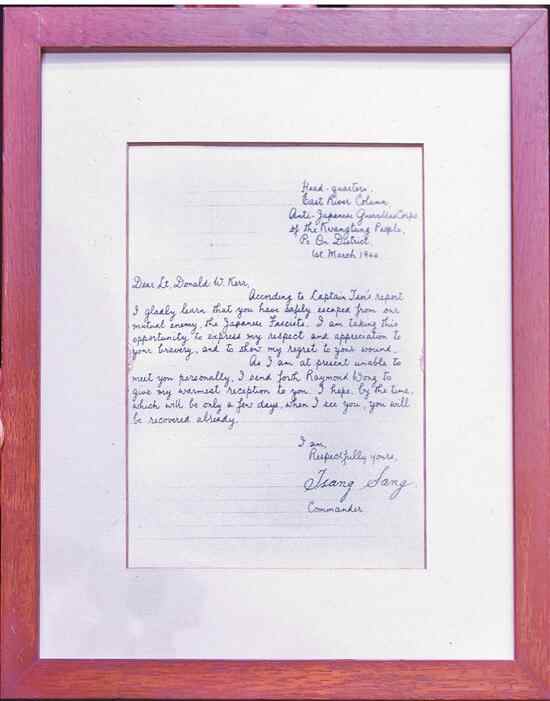 Head-quarters,
East River Column
Anti-Japanese Guerrillas Corps
of the Kwangtung People,
Po On District.
1st March 1944
Dear Lt, Donald W. Kerr,
According to Captain Tan's report
I gladly learn that you have safely escaped from our
mutual enemy, the Japanese Fascists. I am taking this
opportunity to express my respect and appreciation to
your bravery, and to show my regret to your wound.
As I am at present unable to
meet you personally, I send forth Raymond Wong to
give my warmest reception to you. I hope, by the time,
which will be only a few days, when I see you, you will
be recovered already.
I am,
Respectfully yours,
Tsang Sang.
Commander